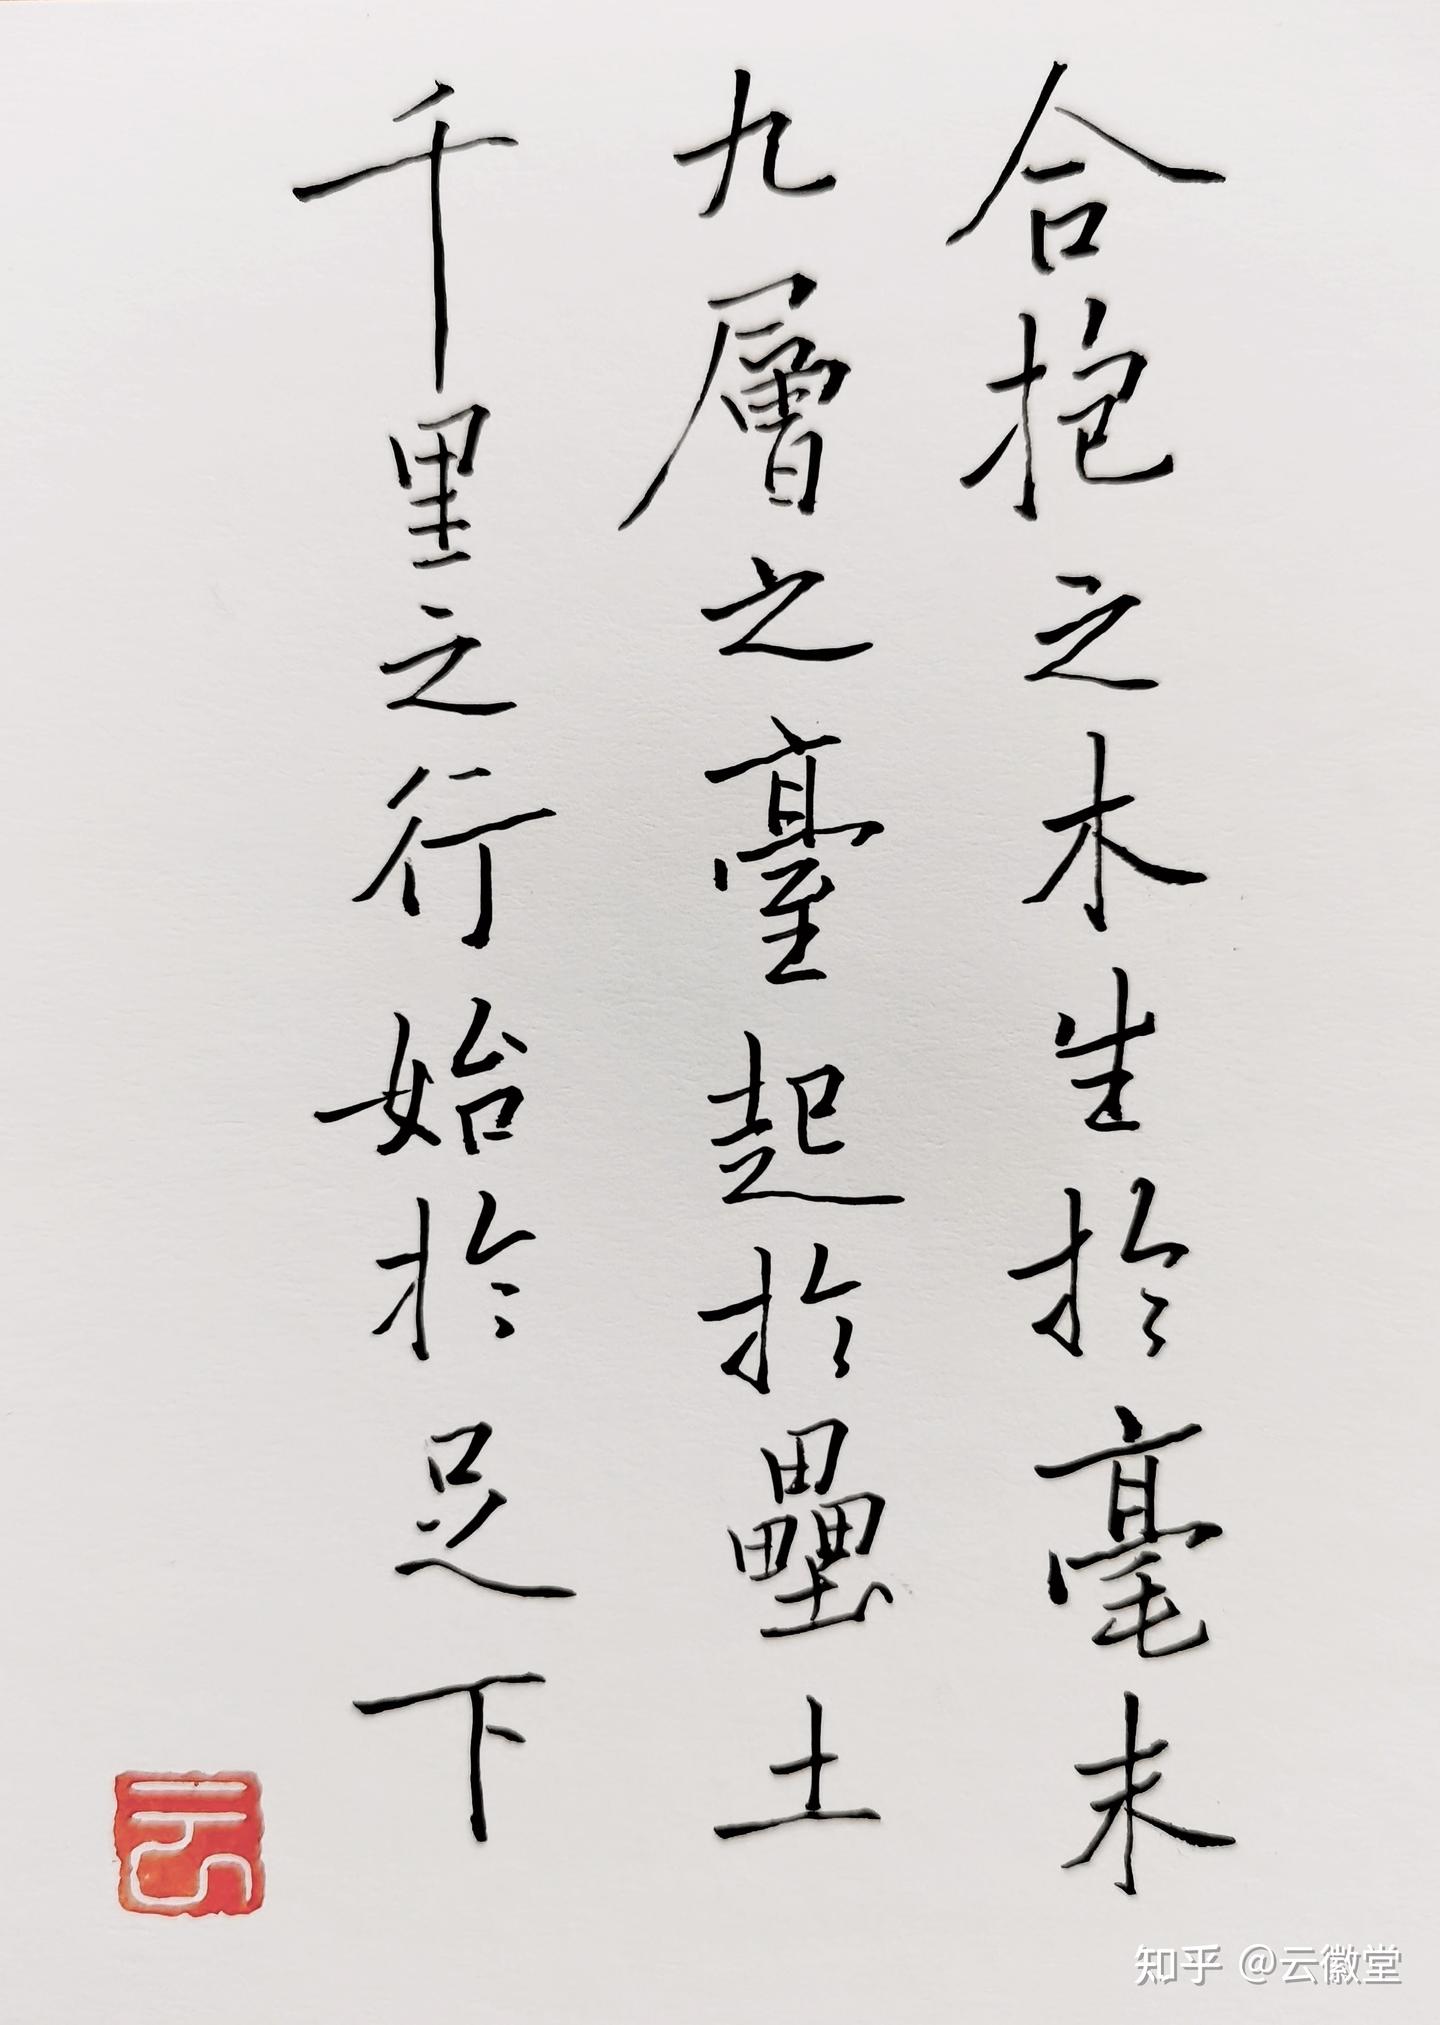 合抱之木生於毫末
九層之臺起於壘土
千里之行始於足下
云
知乎 @云徽堂